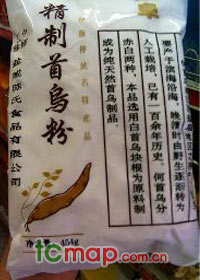 精制首乌粉
盐城陈氏食品有限公司
要产于滨海沿海，晚清时由野生逐渐转为
人工栽培，已有一百余年历史。何首乌分
赤白两种，本品选用白首乌块根为原料制
成为纯天然首乌制品。
454g
tcmap.com.cn